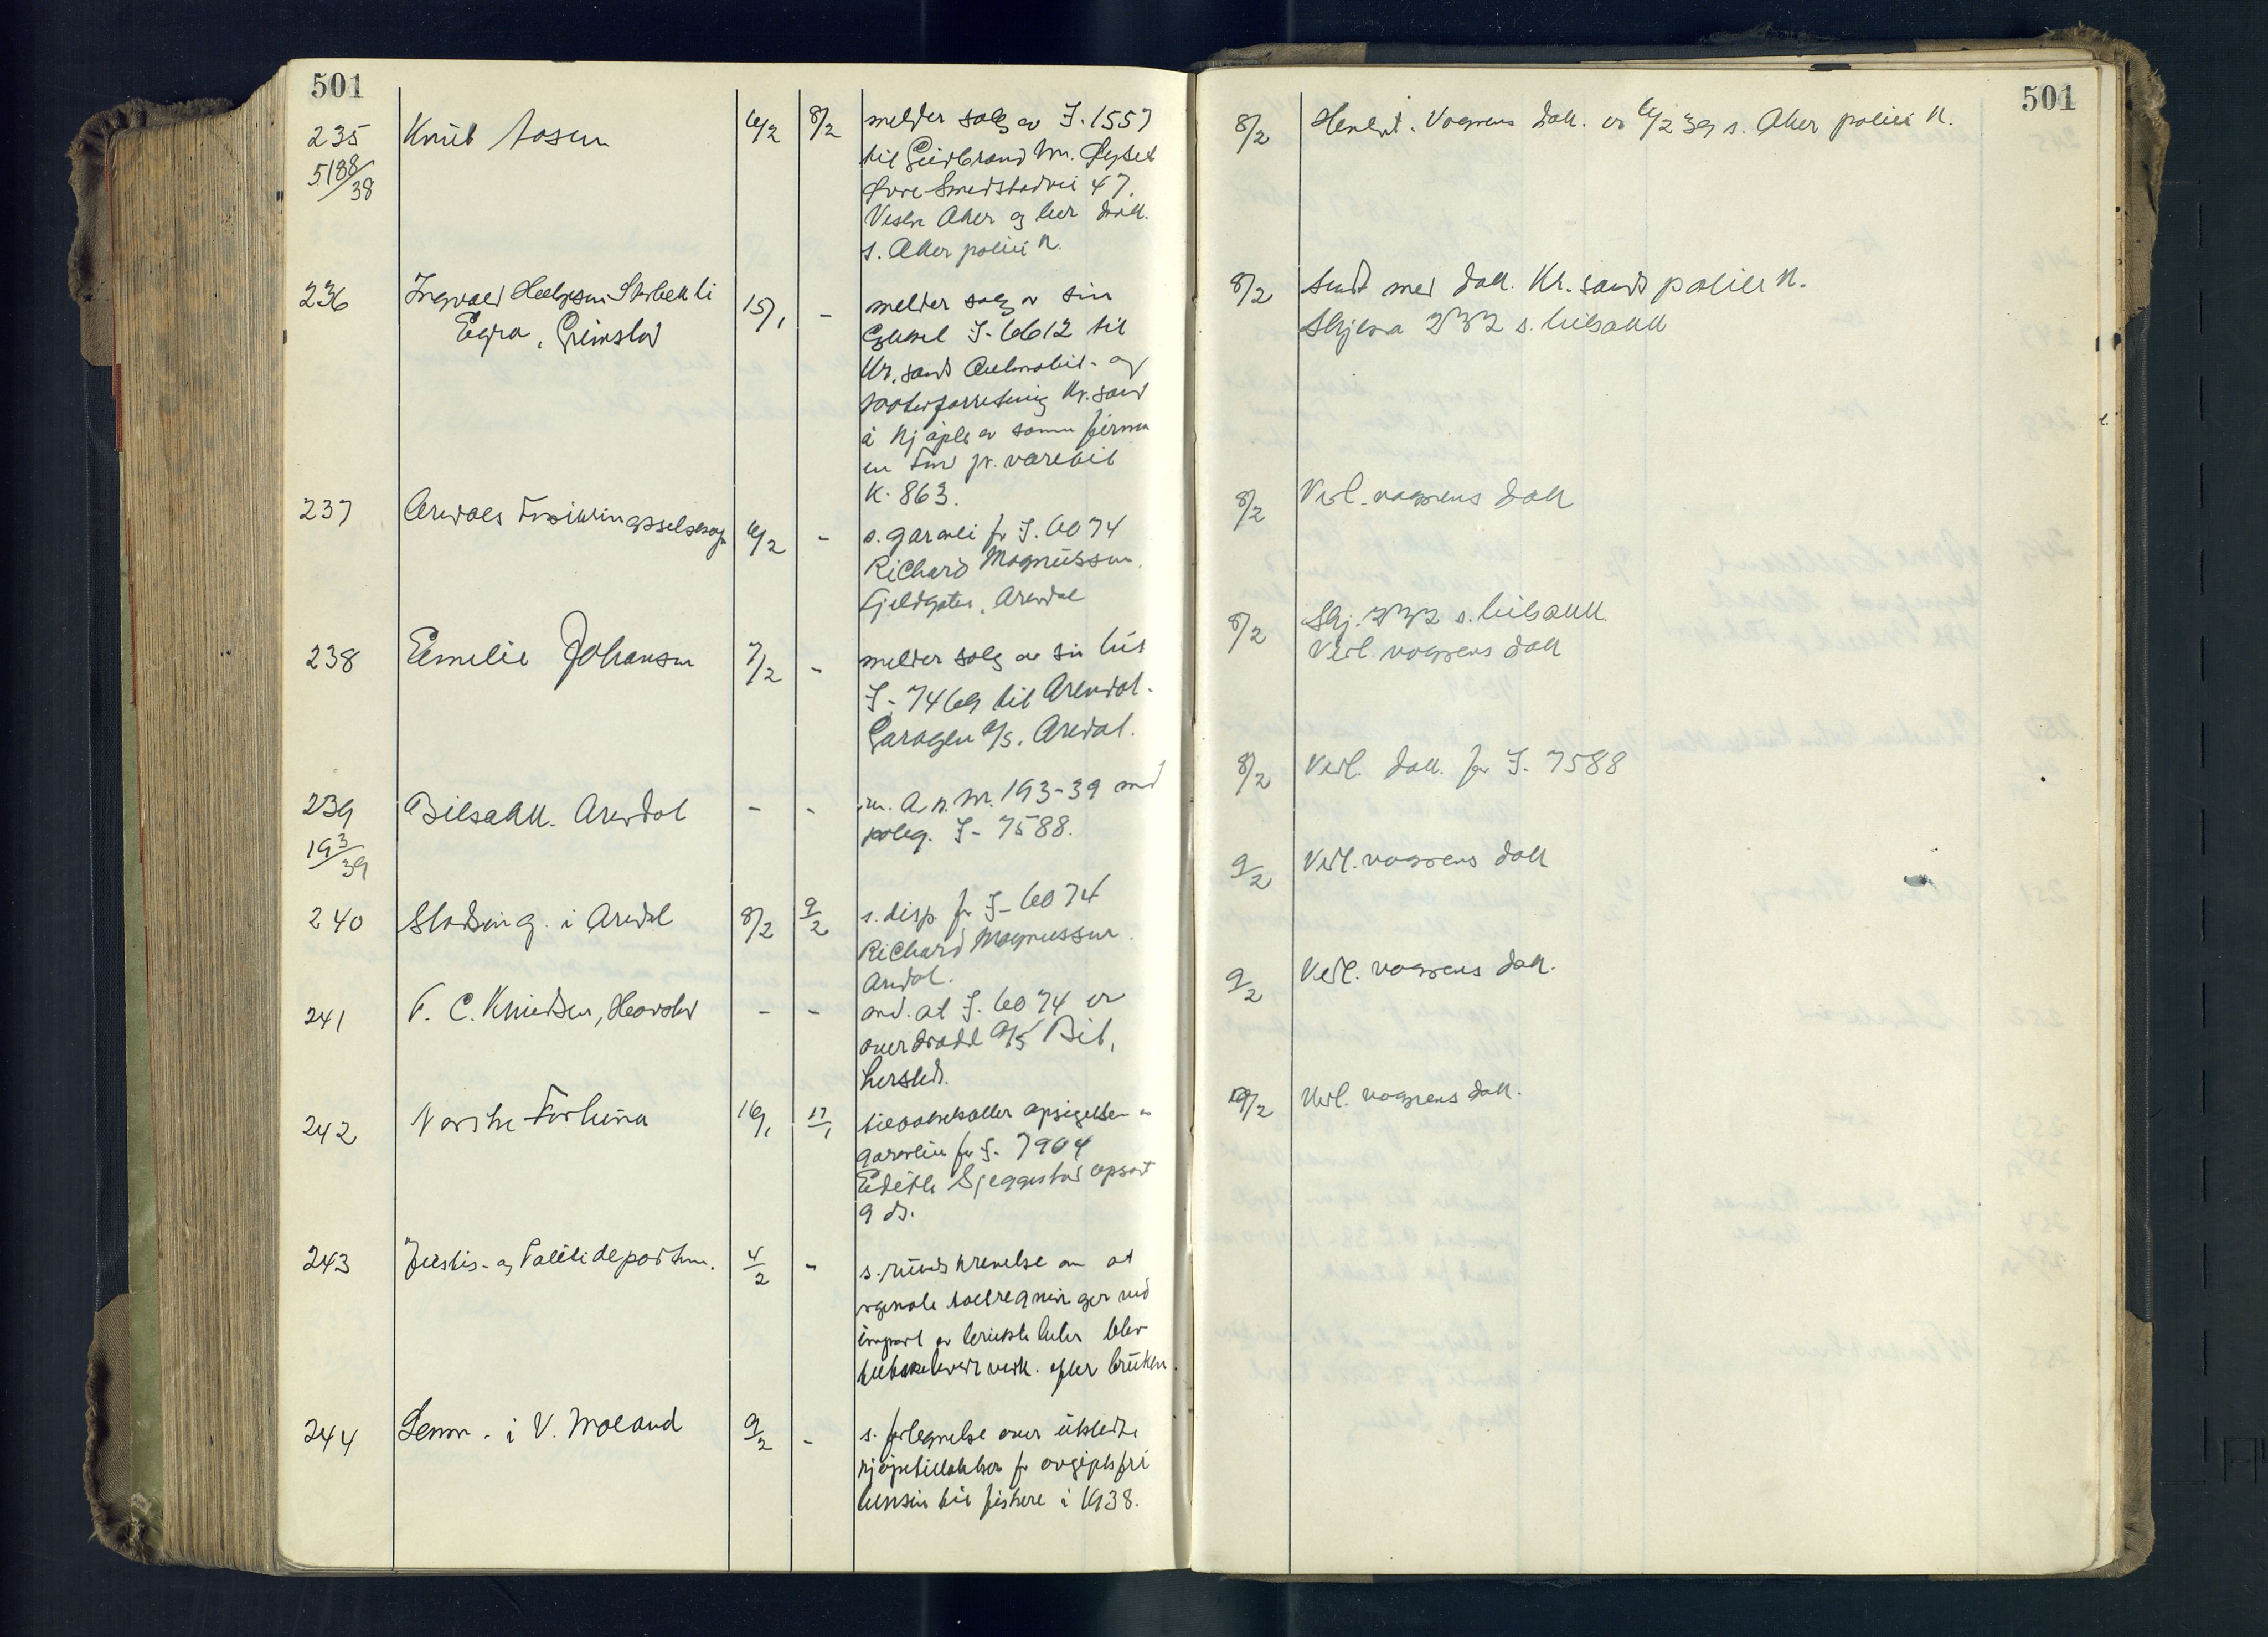 501
235
5188/38
Knut Aasen
6/2
8/2
melder salg av I. 1557
til Gudbrand Øvre Smedstadvei 47.
Vestre Aker og ber dok.
s. Aker politik.
236
Ingvald Helgesen Stobekli
Egra, Grimstad
15/1
-
melder salg av sin
I-6612 til
Kr.sands Automobil- og
Motorforretning Kr.sand
å kjøpt av samme firma
en Ford pr. varebil
K. 863.
237
Arendals Forsikringsselskap
6/2
-
s. garanti for I. 6074
Richard Magnussen,
Fjeldgaten, Arendal
238
Emilie Johansen
7/2
-
melder salg av sin bil
I-7469 til Arendal-
Garagen A/S, Arendal.
239
193/39
Bilsakk. Arendal
-
-
m. A. n. nr. 193-39 med
poleg. I-7588.
240
Stadsing. i Arendal
8/2
9/2
s. disp for I-6074
Richard Magnussen.
Arendal.
241
F. C. Knudsen, Hearsted
-
-
and. at I. 6074 er
overdradd A/S Bil,
242
Norske Fortuna
16/1
17/1
tilbakekaller opsigelsen av
garantien for I. 7904
Edith Sjeggestad opsat
9 ds.
243
Justis- og Politidepartem.
4/2
-
s. rundskrivelse om at
orginale tollregninger ved
import av brukte biler blir
tilbakelevert vedk. efter bruken.
244
Lensm. i V. Moland
9/2
-
s. fortegnelse over utstedte
kjøpetillatelser for avgiftsfri
bensin til fiskere i 1938.
501
8/2
Henlegt. Vognens dok. er 6/2 39 s. Aker politi k.
8/2
Sendt med dok. Kr.sands politik.
Skjema 232 s. bilsakk
8/2
Vedl. vognens dok
8/2
Skj. 232 s. bilsakk.
Vedl. vognens dok
8/2
Vedl. dok. for I-7588
9/2
Vedl. vognens dok
9/2
Vedl. vognens dok.
9/2
Vedl. vognens dok.